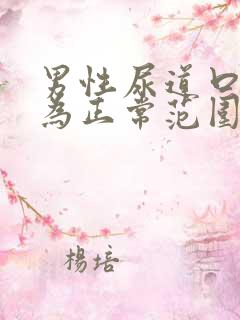 男性尿道口
为正常范围
楊培